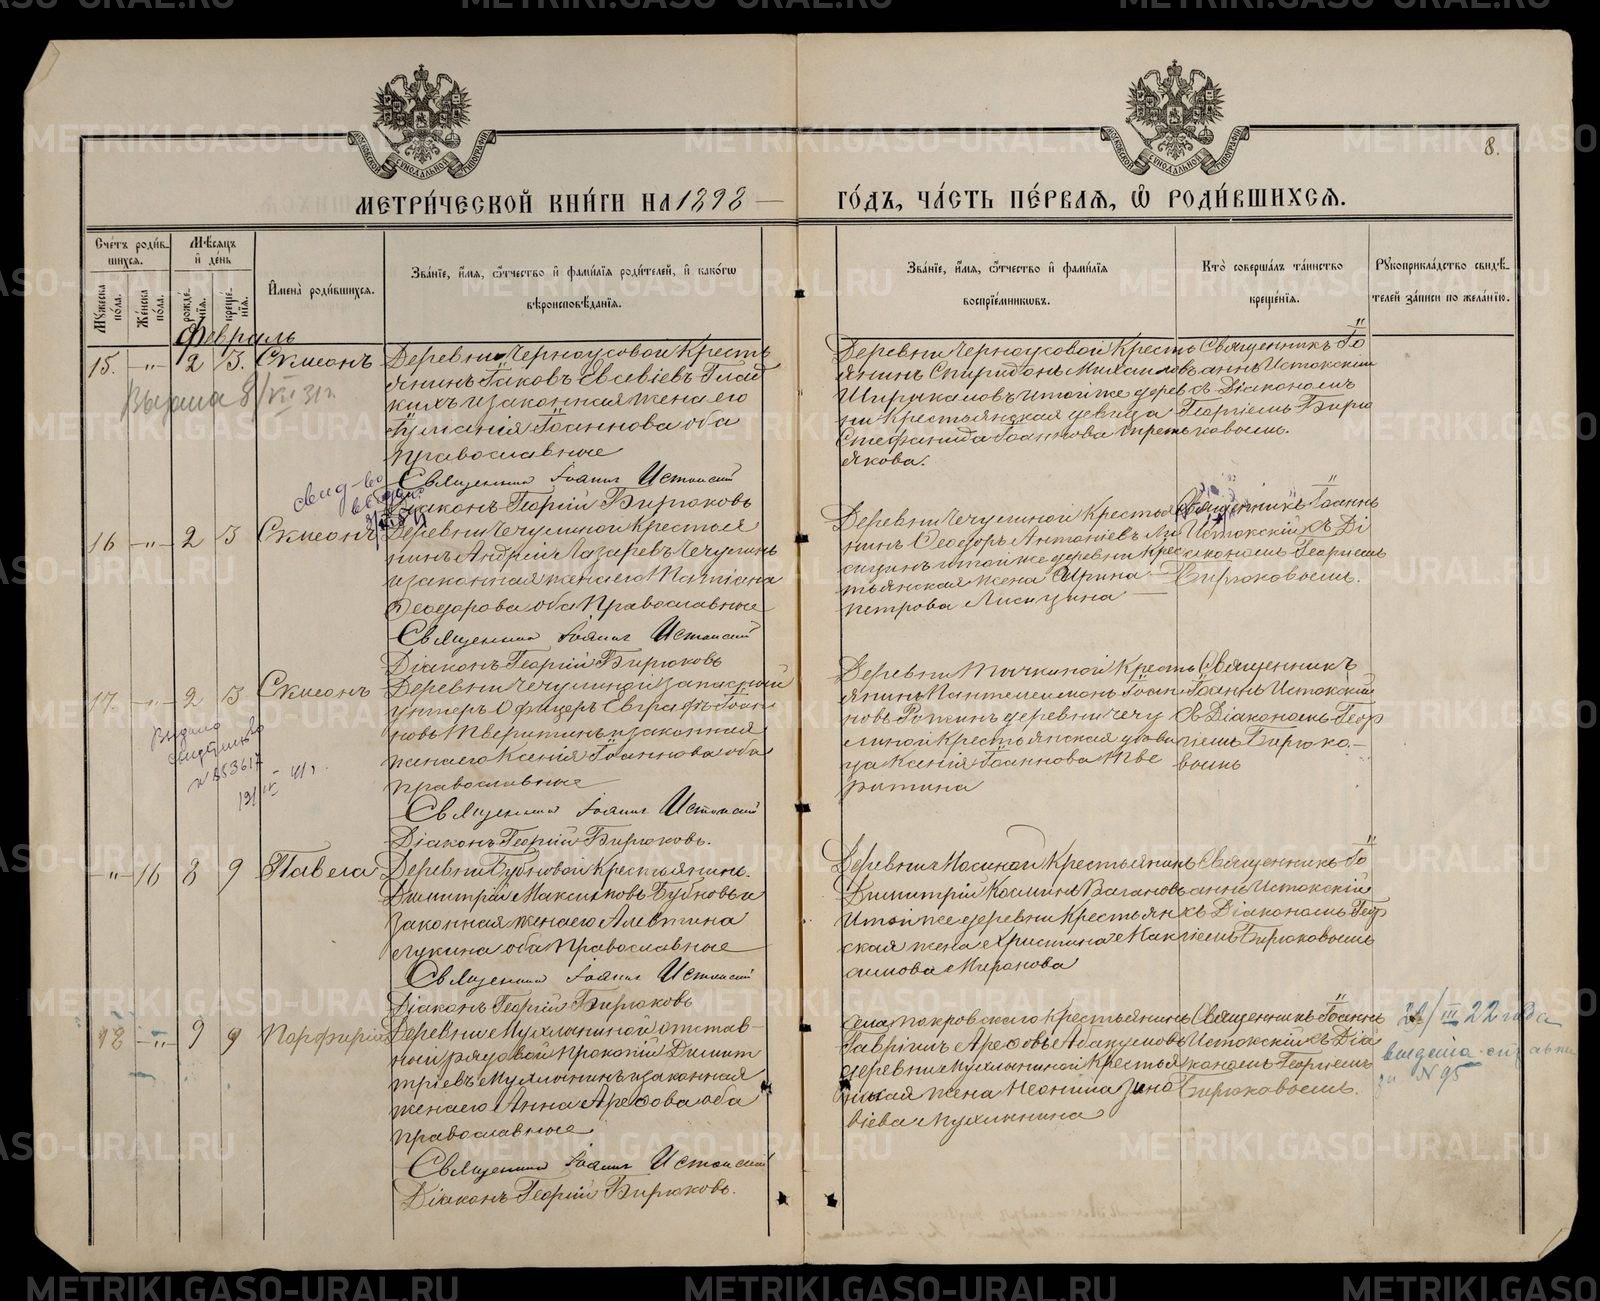 8.
МЕТРИ́ЧЕСКОЙ КНИ́ГИ НА 1898
ГО́ДЪ, ЧА́СТЬ ПЕ́РВАѦ, Ѡ҆ РОДИ́ВШИХСѦ.
Сче́тъ роди́в-
шихсѧ.
Мѣ́сѧцъ
и҆ де́нь
Мꙋ́жеска по́ла.
Же́нска по́ла.
рожде́нїѧ.
креще́нїѧ.
И҆мена̀ роди́вшихсѧ.
Зва́нїе, и҆́мѧ, ѻ҆́тчество и҆ фами́лїѧ роди́телей, и҆ како́гѡ
вѣроисповѣ́данїѧ.
Зва́нїе, и҆́мѧ, ѻ҆́тчество и҆ фами́лїѧ
воспрїе́мникѡвъ.
Кто̀ соверша́лъ та́инство
креще́нїѧ.
Рꙋкоприкла́дство свидѣ́-
телей за́писи по жела́нїю.
Февраль
15. -„- 2 3. Симеонъ
Деревни Черноусовой Кресть
янинъ Іаковъ Евсевіевъ Глад
кихъ и законная жена его
Іоаннова оба
православные
Священникъ Іоаннъ Истокскій
Діаконъ Георгій Бирюковъ
Деревни Черноусовой Кресть
янинъ Спиридонъ Михаиловъ
и той же дерев
ни Крестьянская девица
Стефанида Іоаннова
якова.
Священникъ Іо
аннъ Истокскій
съ Діакономъ
Георгіемъ Бирю
ковымъ.
Выдана 8/VII 31 г.
свид-во
16 -„- 2 3 Симеонъ
Деревни Чечулиной Крестья
нинъ Андрей Лазаревъ Чечулинъ
и законная жена его Татіана
Ѳеодорова оба Православные
Священникъ Іоаннъ Истокскій
Діаконъ Георгій Бирюковъ
Деревни Чечулиной Крестья
нинъ Ѳеодоръ Антоніевъ Ли
сицинъ и той же деревни Крес
тьянская жена Ирина
Петрова Лисицина
Священникъ Іоаннъ
Истокскій съ Ді
акономъ Георгіемъ
Бирюковымъ.
17. -„- 2 3 Симеонъ
Деревни Чечулиной запасный
унтеръ Офицеръ Евграфъ Іоан
новъ Тверитинъ и законная
жена его Ксенія Іоаннова оба
православные
Священникъ Іоаннъ Истокскій
Діаконъ Георгій Бирюковъ.
Деревни Точкиной Кресть
янинъ Пантелеимонъ Іоан
новъ деревни Чечу
линой Крестьянская деви
ца Ксенія Іоаннова Тве
ритина
Священникъ
Іоаннъ Истокскій
съ Діакономъ Геор
гіемъ Бирюко-
вымъ
Выдано
свидетельство
№ 853617
19/IV 41 г.
-„- 16 8 9 Павела
Деревни Бубновой Крестьянинъ
Димитрій Максимовъ Бубновъ и
законная жена его Алевтина
Лукина оба Православные
Священникъ Іоаннъ Истокскій
Діаконъ Георгій Бирюковъ
Деревни Мосиной Крестьянинъ
Димитрій Косминъ Вагановъ
и той же деревни Крестьян
ская жена Христина Мак
симова Миронова
Священникъ Іо
аннъ Истокскій
съ Діакономъ Геор
гіемъ Бирюковымъ
18 -„- 9 9 Порфирій
Деревни Мухлыниной отстав-
ной рядовой Прокопій Димит
тріевъ Мухлынинъ и законная
жена его Анна Арефова оба
православные
Священникъ Іоаннъ Истокскій
Діаконъ Георгій Бирюковъ.
села Покровскаго Крестьянинъ
Гавріилъ Арефовъ Абакумовъ
деревни Мухлыниной Крестья
нская жена Неонила Зино
віева Мухлынина
Священникъ Іоаннъ
Истокскій съ Діа
кономъ Георгіемъ
Бирюковымъ.
/III 22 года
выдана справка
за № 95
METRIKI.GASO-URAL.RU